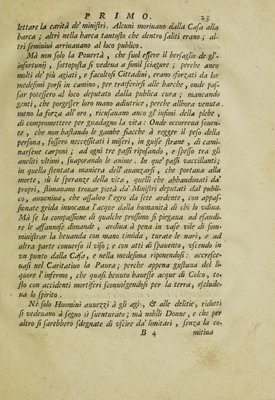 PRIMO. 23
lettare la carità de' ministri. Alcuni moriuano dalla Casa alla
barca; altri nella barca tantosto che dentro saliti erano; al-
tri semiuiui arriuauano al loco publico.
Mà non solo la Pouertà, che suol essere il bersaglio de gl'
infortunij, sottoposta si vedeua a simil sciagure; perche anco
molti de' più agiati, e facoltosi Cittadini, erano sforzati da lor
medesimi porsi in camino, per trasferirsi alle barche, onde pas-
sar potessero al loco deputato dalla publica cura; mancando
genti, che porgesser loro mano adiutrice, perche allhora venuta
meno la forza all' oro, ricusauano anco gl' infimi della plebe,
di comprometter per guadagno la vita: Onde occorreua soura-
te, che non bastando le gambe fiacche à reggere il peso della
persona, fossero necessitati i miseri, in guise strane, di cami-
narsene carponi; ad ogni tre passi riposando, e spesso tra gli
aneliti vltimi, suaporando le anime. In que' passi vaccillanti;
in quella stentata maniera dell' auanzarsi, che portaua alla
morte, sù le speranze della vita, quelli che abbandonati da'
proprij, stimauano trouar pietà da' Ministri deputati dal publi-
co, auueniua, che assalito l'egro da sete ardente, con appas-
sionate grida inuocaua l'acque dalla humanità di chi lo vdiua.
Mà se la compassione di qualche prossimo si piegaua ad esaudi-
re le affannose dimande, ardiua à pena in vase vile di som-
ministrar la beuanda con mano timida, turate le nari, e ad
altra parte conuerso il viso; e con atti di spauento, vscendo in
vn punto dalla Casa, e nella medesima riponendosi: accresce-
uasi nel Caritatiuo la Paura; perche appena gustaua del li-
quore l'infermo, che quasi beuuto hauesse acqua di Colco, to-
sto con accidenti mortiferi sconuolgendosi per la terra, esclude-
ua lo spirito.
Nè solo Huomini auuezzi à gli agi, & alle delitie, ridutti
si vedeuano à segno sì suenturato; mà nobili Donne, e che per
altro si sarebbero sdegnate di vscire da' limitari, senza la co-
B 4 mitiua